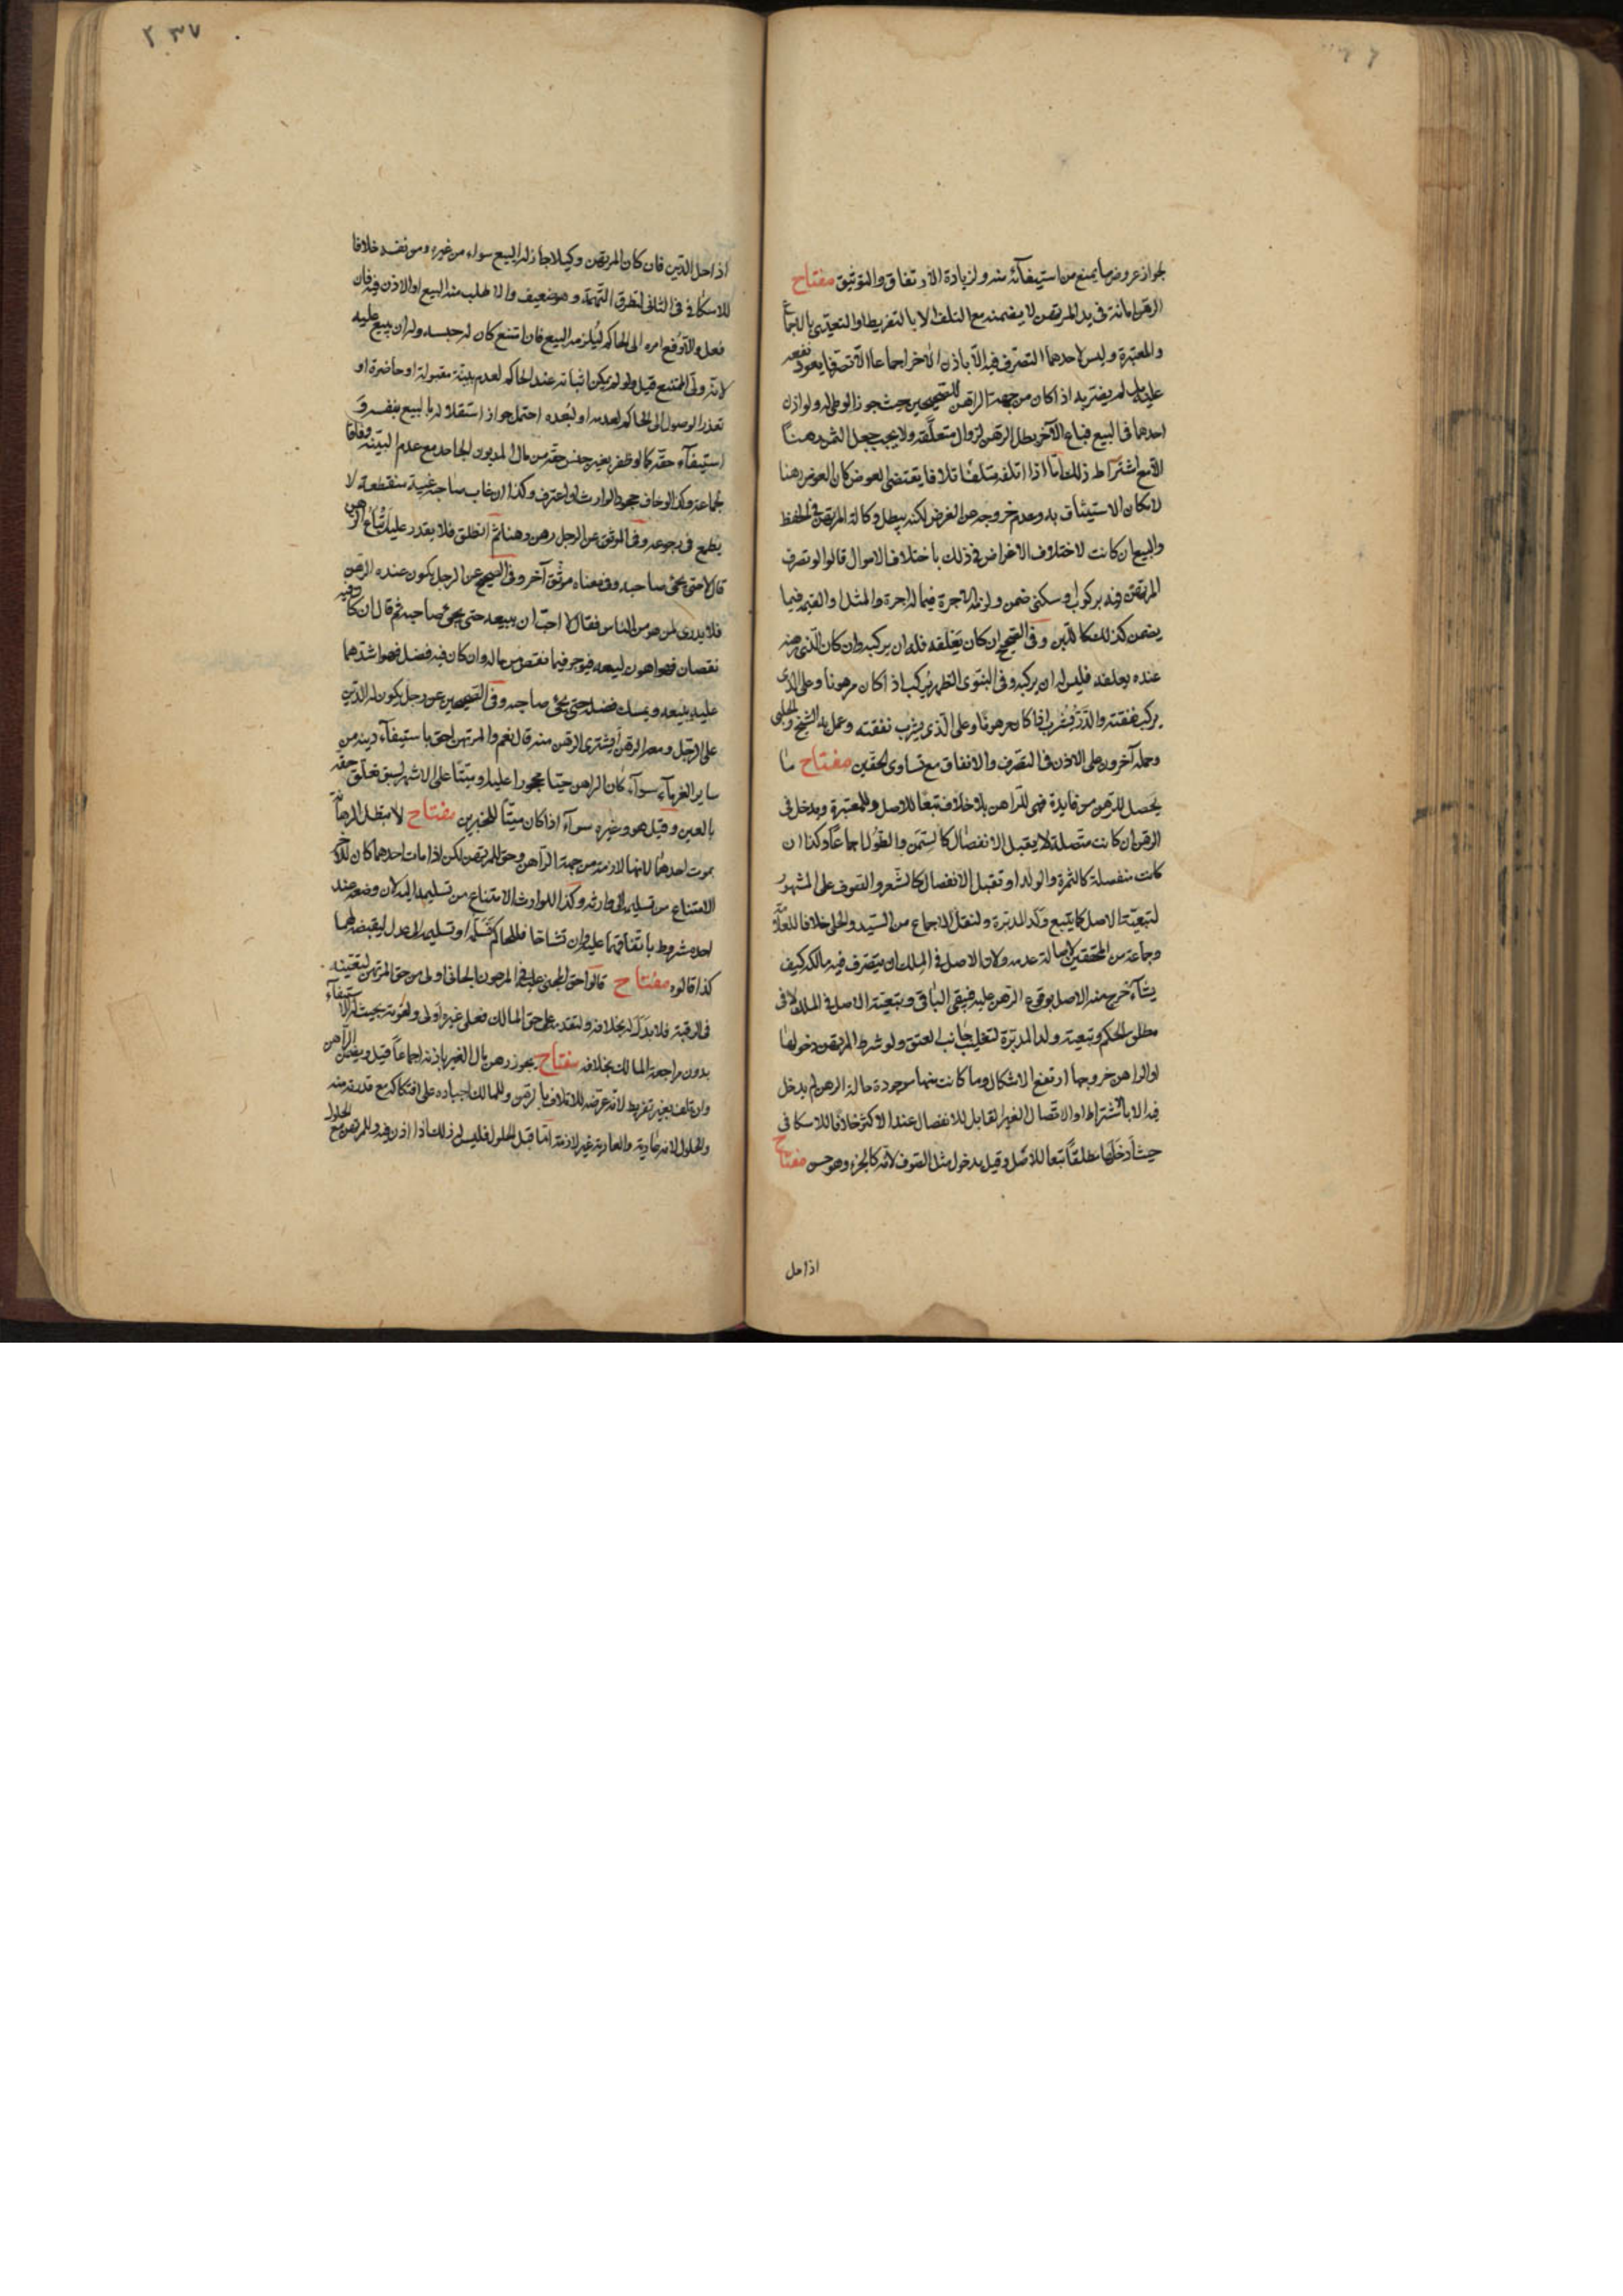 لجواز عروض ما يمنع من استيفائه منه ولزيادة الارتفاق والتوثيق مفتاح
الرهن امانة في يد المرتهن لا يضمنه مع التلف الا بالتفريط او التعدي بالاجماع
والمعتبرة وليس لاحدهما التصرف فيه الا باذن الاخر اجماعا الا تصرفا يعود نفعه
عليه لم يضر به اذا كان من جهة الراهن للصحيحين حيث جوز الوطي له ولو اذن
احدهما في البيع فباع الآخر بطل الرهن لزوال متعلقه ولا يجب جعل الثمن رهنا
الا مع اشتراط ذلك اما اذا اتلفه متلف اتلافا يقتضي العوض كان العوض رهنا
لامكان الاستيثاق به وعدم خروجه عن الغرض لكنه يبطل وكالة المرتهن في الحفظ
والبيع ان كانت لاختلاف الاغراض في ذلك باختلاف الاموال قالوا لو تصرف
المرتهن فيه بركوب او سكنى ضمن ولزمه الاجرة فيما له اجرة والمثل او القيمة فيما
يضمن كذلك كاللبن وفي الصحيح ان كان يعلفه فله ان يركبه وان كان الذي رهنه
عنده يعلفه فليس له ان يركبه وفي النبوي الظهر يركب اذا كان مرهونا وعلى الذي
يركبه نفقته والدر يشرب اذا كان مرهونا وعلى الذي يشرب نفقته وعمل به الشيخ والحلبي
وحمله آخرون على الاذن في التصرف والانفاق مع تساوي الحقين مفتاح ما
يحصل للرهن من فايدة فهي للراهن بلا خلاف تبعا للاصل وللمعتبرة ويدخل في
الرهن ان كانت متصلة لا يقبل الانفصال كالسمن والطول اجماعا وكذا ان
كانت منفصلة كالثمرة والولد او تقبل الانفصال كالشعر والصوف على المشهور
لتبعية الاصل كما يتبع ولد المدبرة ولنقل الاجماع من السيد والحلي خلافا للعلامة
وجماعة من المحققين لاصالة عدمه ولان الاصل في الملك ان يتصرف فيه مالكه كيف
يشاء خرج منه الاصل بوقوع الرهن عليه فيبقى الباقي وبتبعية الاصل في الملك لا في
مطلق الحكم وتبعية ولد المدبرة لتغليب جانب العتق ولو شرط المرتهن دخولها
او الراهن خروجها ارتفع الاشكال وما كانت منها موجودة حالة الرهن لم يدخل
فيه الا بالاشتراط او الاتصال الغير القابل للانفصال عند الاكثر خلافا للاسكافي
حيث ادخلها مطلقا تبعا للاصل وقيل يدخل مثل الصوف لانه كالجزء وهو حسن مفتاح
اذا حل
٢٣٧
اذا حل الدين فان كان المرتهن وكيلا جاز له البيع سواء من غيره ومن نفسه خلافا
للاسكافي في الثاني لتطرق التهمة وهو ضعيف والا طلب منه البيع او الاذن فيه فان
فعل والا رفع امره الى الحاكم ليلزمه البيع فان امتنع كان له حبسه وله ان يبيع عليه
لانه ولي الممتنع قيل ولو لم يكن اثباته عند الحاكم لعدم بينة مقبولة او حاضرة او
تعذر الوصول الى الحاكم لعدمه او لبعده احتمل جواز استقلاله بالبيع بنفسه و
استيفاء حقه كما لو ظفر بغير جنس حقه من مال المديون الجاحد مع عدم البينة وفاقا
لجماعة وكذا لو خاف جحود الوارث لو اعترف وكذا ان غاب صاحبه غيبة منقطعة لا
يطمع في رجوعه وفي الموثق عن الرجل رهن رهنا ثم انطلق فلا يقدر عليه اتباع الرهن
قال لا حتى يجئ صاحبه وفي معناه موثق آخر وفي الصحيح عن الرجل يكون عنده الرهن
فلا يدري لمن هو من الناس فقال لا احب ان يبيعه حتى يجئ صاحبه ثم قال ان كان فيه
نقصان فهو اهون لبيعه فيوجر فيما نقص من ماله وان كان فيه فضل فهو اشدهما
عليه يبيعه ويمسك فضله حتى يجئ صاحبه وفي الصحيحين عن رجل يكون له الدين
على الرجل ومعه الرهن أيشتري الرهن منه قال نعم والمرتهن احق باستيفاء دينه من
ساير الغرماء سواء كان الراهن حيا محجورا عليه او ميتا على الاشهر لسبق تعلق حقه
بالعين وقيل هو وغيره سواء اذا كان ميتا للخبرين مفتاح لا تبطل الرهانة
بموت احدهما لانها لازمة من جهة الراهن وحق للمرتهن لكن اذا مات احدهما كان للآخر
الامتناع من تسليمه الى وارثه وكذا للوارث الامتناع من تسليمه اليه لان وضعه عند
احد مشروط باتفاقهما عليه وان تشاحا فللحاكم تسلمه او تسليمه الى عدل ليقبضه لهما
كذا قالوه مفتاح قالوا حق المجني عليه في المرهون الجاني اولى من حق المرتهن لتعينه
في الرقبة فلا بدل له بخلافه ولتقدمه على حق المالك فعلى غيره اولى ولقوته بحيث له الاستيفاء
بدون مراجعة المالك بخلافه مفتاح يجوز رهن مال الغير باذنه اجماعا قيل ويضمن الراهن
وان تلف بغير تفريط لانه عرضه للاتلاف بالرهن وللمالك اجباره على افتكاكه مع قدرته منه
والحلول لانه عارية والعارية غير لازمة اما قبل الحلول فليس له ذلك اذا اذن فيه وللمرتهن مع الحلول